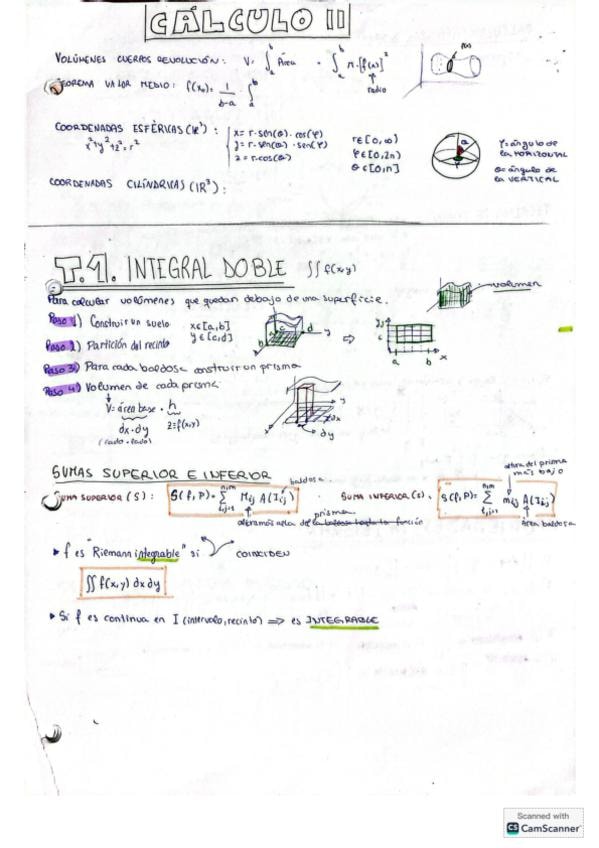 CÁLCULO II
VOLÚMENES CUERPOS REVOLUCIÓN: V= ∫ₐᵇ Área = ∫ₐᵇ π·[f(x)]² f(x)
radio
TEOREMA VALOR MEDIO: f(x₀)= 1/(b-a) ∫ₐᵇ
COORDENADAS ESFÉRICAS (ℝ³):
x²+y²+z²=r²
x= r·sen(θ)·cos(φ)
y= r·sen(θ)·sen(φ)
z= r·cos(θ)
r∈[0,∞)
φ∈[0,2π)
θ∈[0,π]
φ=ángulo de la HORIZONTAL
θ=ángulo de la VERTICAL
COORDENADAS CILÍNDRICAS (ℝ³):
T.1. INTEGRAL DOBLE ∫∫ f(x,y)
Para calcular volúmenes que quedan debajo de una superficie. volumen
Paso 1) Construir un suelo x∈[a,b]
y∈[c,d]
Paso 2) Partición del recinto
Paso 3) Para cada baldosa construir un prisma
Paso 4) Volumen de cada prisma
V= área base · h
dx·dy z=f(x,y)
(lado·lado)
dx
dy
SUMAS SUPERIOR E INFERIOR
SUMA SUPERIOR (S): S(f,P)= Σ Mij A(Iij) baldosa
SUMA INFERIOR (s): s(f,P)= Σ mij A(Iij)
altura del prisma más bajo
prisma
área baldosa
▸ f es "Riemann integrable" si COINCIDEN
∫∫ f(x,y) dx dy
▸ Si f es continua en I (intervalo, recinto) ⇒ es INTEGRABLE
Scanned with
CS CamScanner